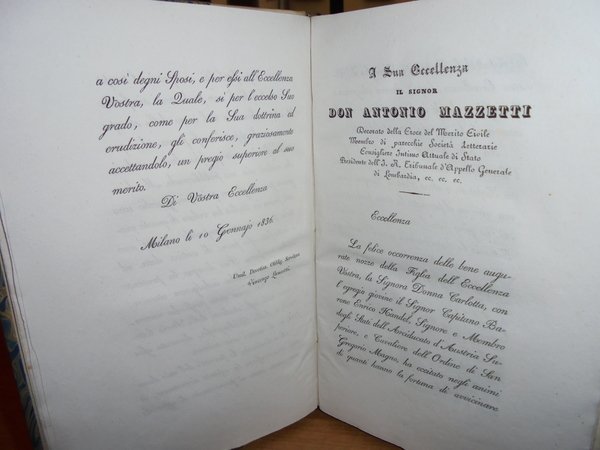 a così degni Sposi, e per essi all'Eccellenza
Vostra, la Quale, sì per l'eccelso Suo
grado, come per la Sua dottrina ed
erudizione, gli conferisce, graziosamente
accettandolo, un pregio superiore al suo
merito.
Di Vostra Eccellenza
Milano li 10 Gennajo 1836.
Umil. Devotis. Obblig. Servitore
A Sua Eccellenza
IL SIGNOR
DON ANTONIO MAZZETTI
Decorato della Croce del Merito Civile
Membro di parecchie Società Letterarie
Consigliere Intimo Attuale di Stato
Presidente dell'I. R. Tribunale d'Appello Generale
di Lombardia, ec. ec. ec.
Eccellenza
La felice occorrenza delle bene augu-
rate nozze della Figlia dell'Eccellenza
Vostra, la Signora Donna Carlotta, con
l'egregio giovine il Signor Capitano Ba-
rone Enrico Handel, Signore e Membro
degli Stati dell'Arciducato d'Austria Su-
periore, e Cavaliere dell'Ordine di San
Gregorio Magno, ha eccitato negli animi
di quanti hanno la fortuna di avvicinare